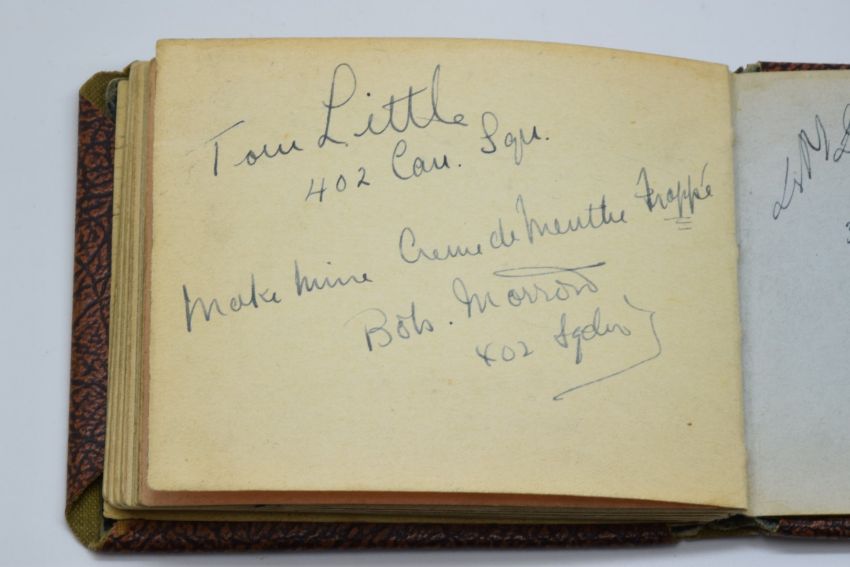 Tom Little
402 Can. Sqn.
Make Mine Creme de Menthe Frappé
Bob. Morrow
402 Sqdn